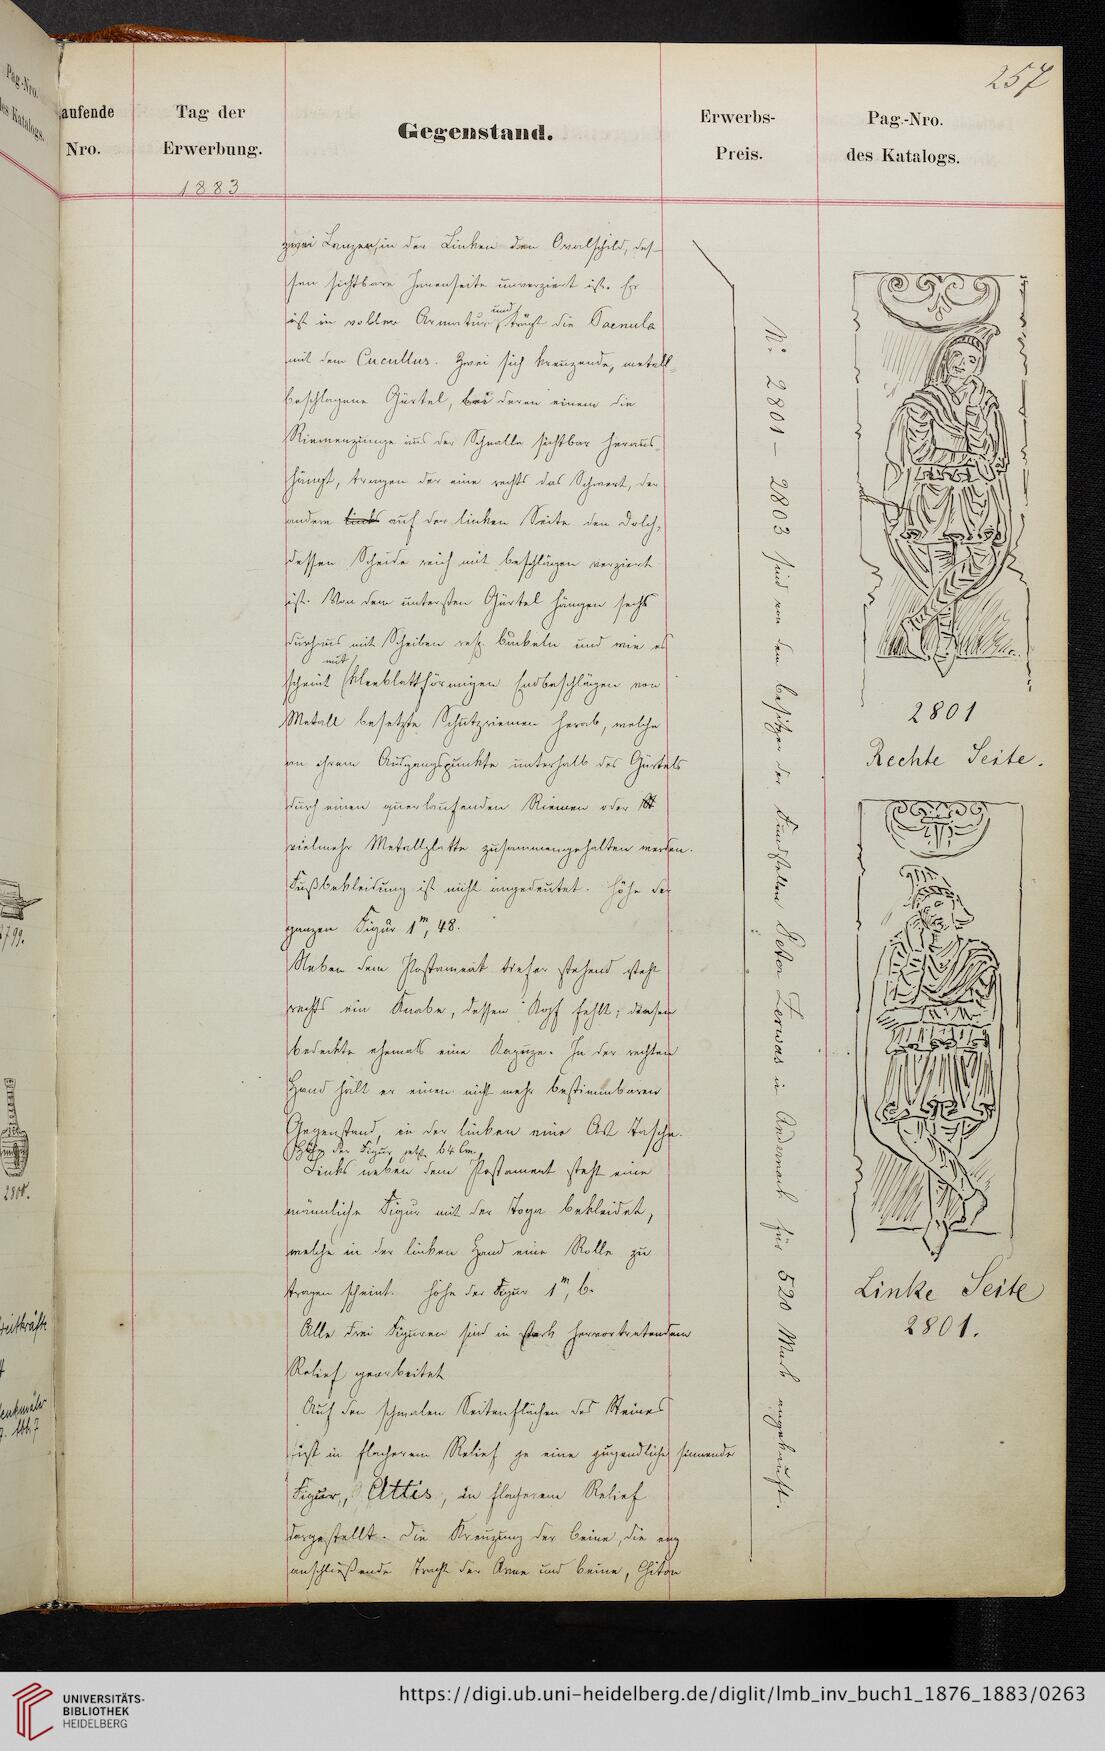 257
Pag.-Nro.
des Katalogs.
aufende
Nro.
Tag der
Erwerbung.
Gegenstand.
Erwerbs-
Preis.
Pag.-Nro.
des Katalogs.
1883
zwei Lanzen, in der Linken den Ovalschild, des-
sen sichtbare Innenseite unverziert ist. Er
ist in voller Armatur und trägt die Paenula
mit dem Cucullus. Zwei sich kreuzende, metall-
beschlagene Gürtel, bei deren einem die
Riemenzunge aus der Schnalle sichtbar heraus-
hängt, tragen der eine rechts das Schwert, der
andere links auf der linken Seite den Dolch,
dessen Scheide reich mit Beschlägen verziert
ist. Von dem untersten Gürtel hängen sechs
durchaus mit Scheiben resp. Buckeln und wie es
scheint mit kleeblattförmigen Endbeschlägen von
Metall besetzte Schutzriemen herab, welche
an ihrem Ausgangspunkte unterhalb des Gürtels
durch einen querlaufenden Riemen oder
vielmehr Metallplatte zusammengehalten werden.
Fußbekleidung ist nicht angedeutet. Höhe der
ganzen Figur 1m, 48.
Neben dem Postament tiefer stehend steht
rechts ein Knabe, dessen Kopf fehlt; diesen
bedeckte ehemals eine Kapuze. In der rechten
Hand hält er einen nicht mehr bestimmbaren
Gegenstand, in der linken eine Tasche.
Höhe der Figur jetzt 64 Cm.
Links neben dem Postament steht eine
männliche Figur mit der Toga bekleidet,
welche in der linken Hand eine Rolle zu
tragen scheint. Höhe der Figur 1m, 6.
Alle drei Figuren sind in stark hervortretendem
Relief gearbeitet
Auf den schmalen Seitenflächen des Steines
ist in flacherem Relief je eine jugendliche sinnende
Figur, Attis, in flacherem Relief
dargestellt. Die Kreuzung der Beine, die eng
anschließende Tracht der Arme und Beine, Chiton
No 2801 – 2803 sind von dem Besitzer der Fundstellen Peter Zerwas in Andernach für 520 Mark angekauft.
2801
Rechte Seite.
Linke Seite
2801.
2799.
2800.